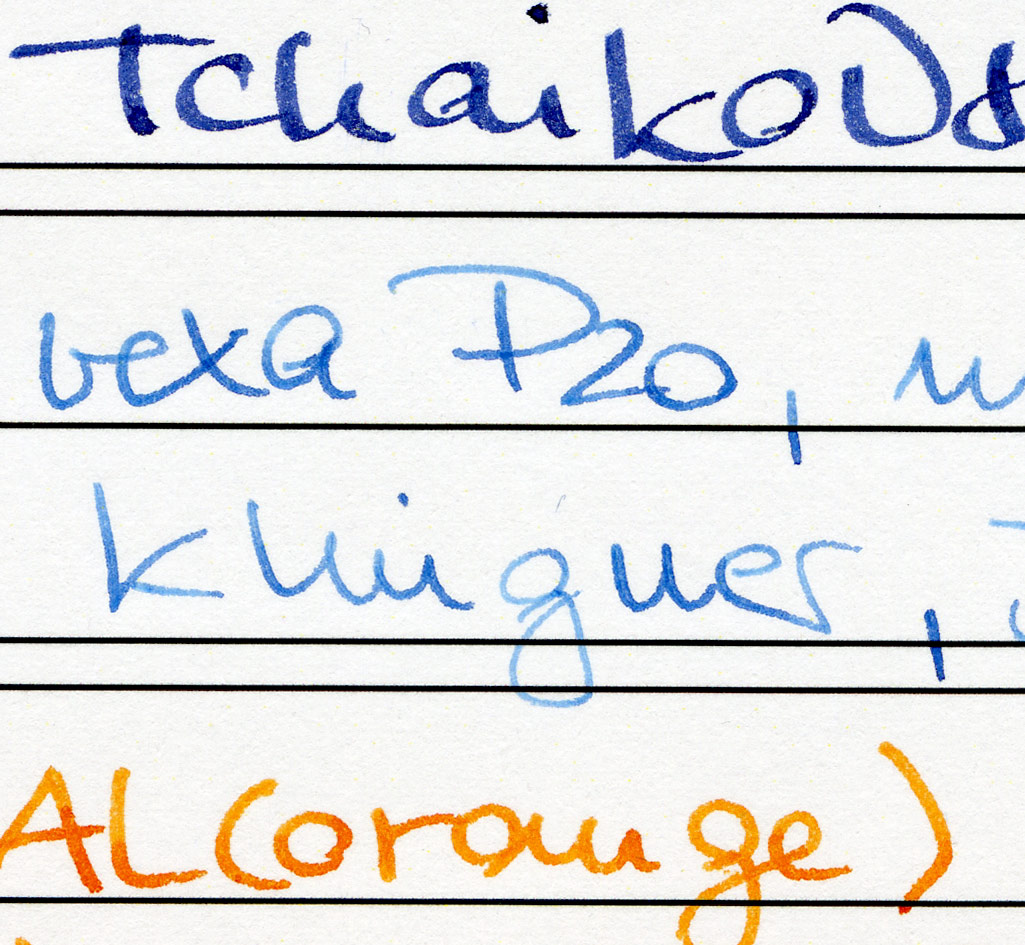 Tchaikovs
vexa P20, m
Klingner,
AL (orange)